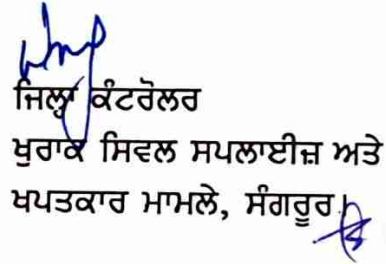 ਜਿਲ੍ਹਾ ਕੰਟਰੋਲਰ
ਖੁਰਾਕ ਸਿਵਲ ਸਪਲਾਈਜ਼ ਅਤੇ
ਖਪਤਕਾਰ ਮਾਮਲੇ, ਸੰਗਰੂਰ।